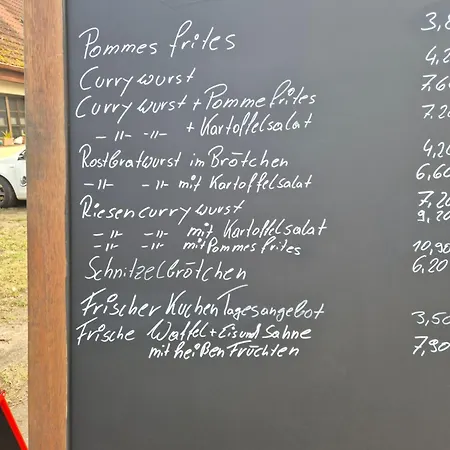 Pommes frites 3,8
Currywurst 4,2
Currywurst + Pommefrites 7,60
-"- -"- + Kartoffelsalat 7.20
Rostbratwurst im Brötchen 4,20
-"- -"- mit Kartoffelsalat 6,60
Riesencurrywurst 7,20
-"- -"- mit Kartoffelsalat 9,20
-"- -"- mit Pommes frites 10,90
Schnitzelbrötchen 6,20
Frischer Kuchen Tagesangebot 3,50
Frische Waffel + Eis und Sahne
mit heißen Früchten 7,90